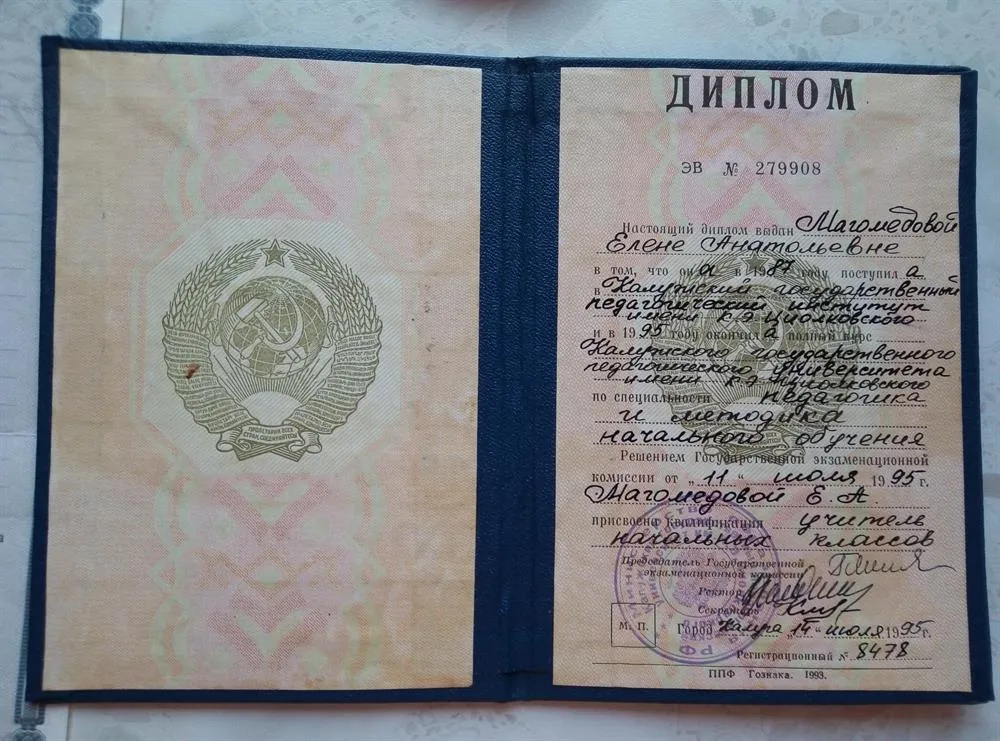 ПРОЛЕТАРИИ ВСЕХ
СТРАН, СОЕДИНЯЙТЕСЬ!
ДИПЛОМ
ЭВ № 279908
Настоящий диплом выдан Магомедовой
Елене Анатольевне
в том, что он а в 1987 году поступил а
в Калужский государственный
педагогический институт
имени К Э Циолковского
и в 1995 году окончил а полный курс
Калужского государственного
педагогического университета
имени К Э Циолковского
по специальности педагогика
и методика
начального обучения
Решением Государственной экзаменационной
комиссии от „ 11 “ июля 1995 г.
Магомедовой Е. А.
присвоена квалификация учитель
начальных классов
Председатель Государственной
экзаменационной комиссии
Ректор
Секретарь
М. П.
Город Калуга „ 14 “ июля 1995 г.
Регистрационный № 8478
ППФ Гознака. 1993.